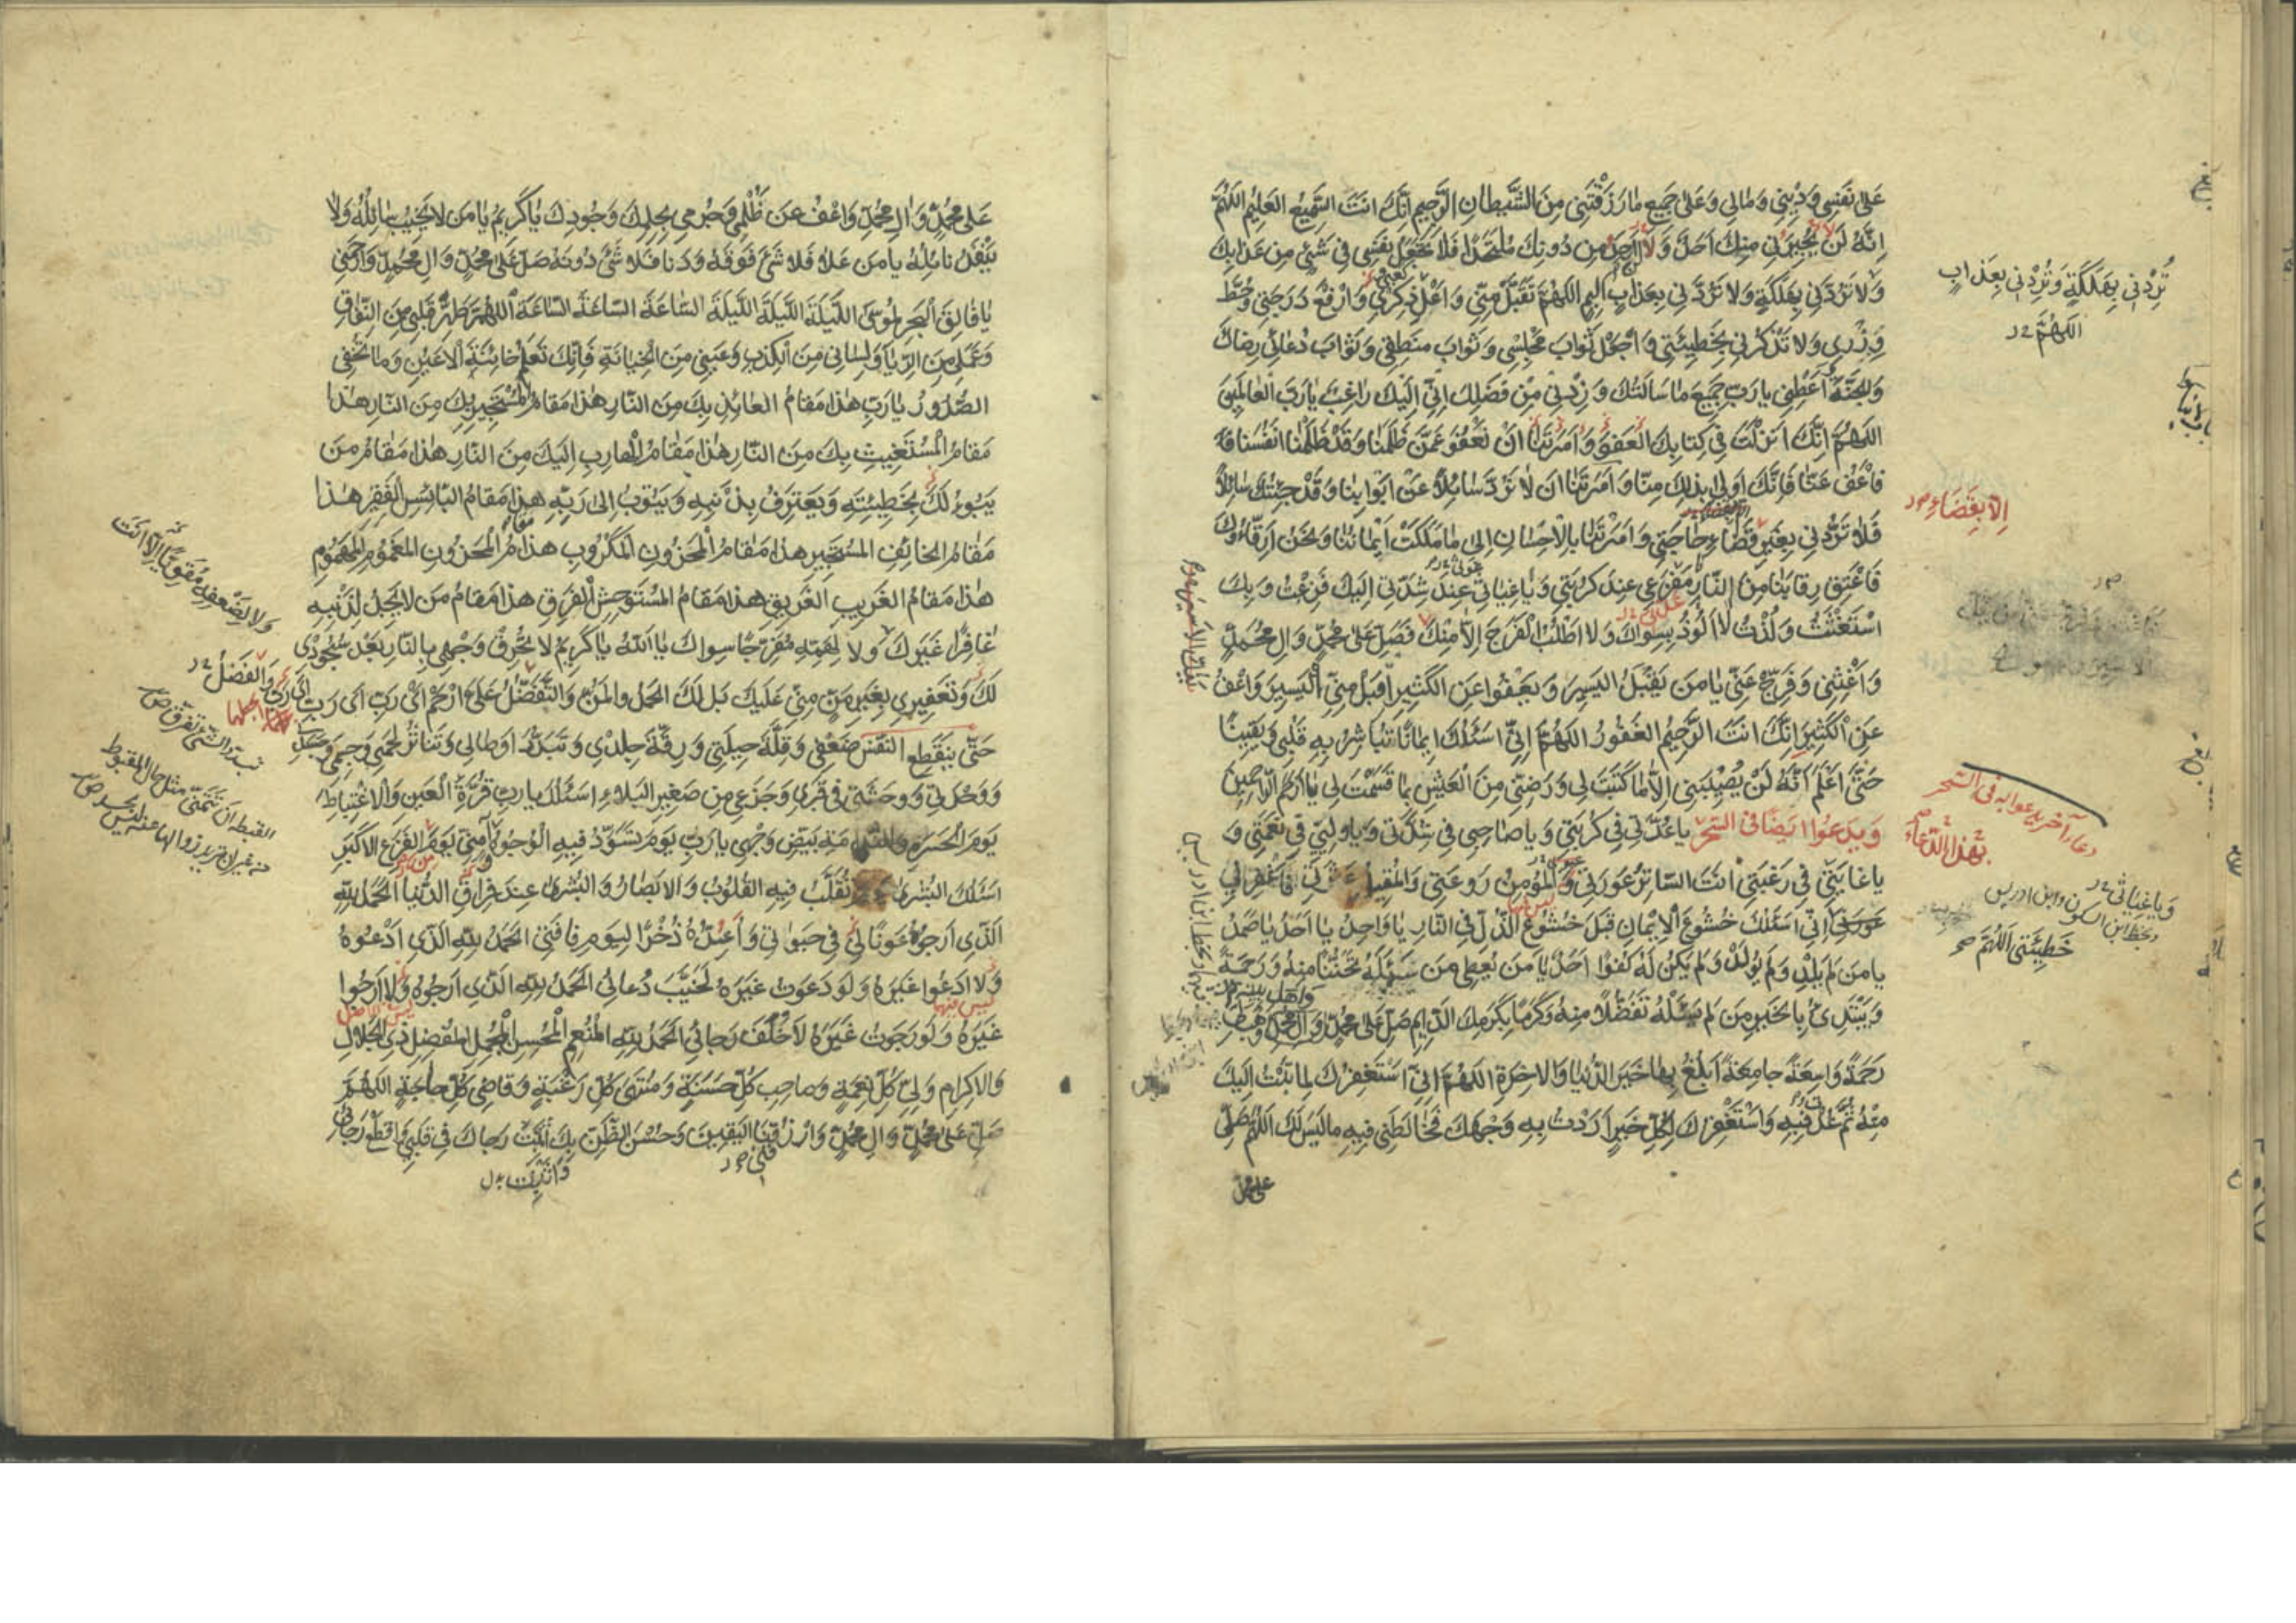 عَلى نَفسِي وَدِيْنِي وَمٰالِي وَعَلىٰ جَمِيعِ مٰا رَزَقْتَنِي مِنَ الشَّيْطانِ الرَّجِيمِ اِنَّكَ اَنتَ السَّمِيعُ العَلِيمُ اَللّهُمَّ
اِنَّهُ لَنْ يُجِيرَنِي مِنكَ اَحَدٌ وَلٰا اَجِدُ مِن دُونِكَ مُلْتَحَدًا فَلٰا تَجْعَل نَفسِي فِي شَيْئٍ مِن عَذابِكَ
وَلا تَرُدَّنِي بِهَلَكَةٍ وَلا تَرُدَّنِي بِعَذابٍ اَلِيمٍ اللّهُمَّ تَقَبَّلْ مِنِّي وَاَعْلِ ذِكْرِي وَارْفَعْ دَرَجَتِي وَحُطَّ
وِزْرِي وَلا تَذْكُرْنِي بِخَطِيئَتِي وَاجْعَل ثَوابَ مَجْلِسِي وَثَوابَ مَنطِقِي وَثَوابَ دُعٰائِي رِضاكَ
وَالجَنَّةَ اَعْطِنِي يا رَبِّ جَمِيعَ مٰا سَاَلتُكَ وَزِدْنِي مِنْ فَضْلِكَ اِنِّي اِلَيْكَ راغِبٌ يا رَبَّ العٰالَمِينَ
اللّهُمَّ اِنَّكَ اَنزَلْتَ فِي كِتابِكَ العَفوَ وَاَمَرتَنٰا اَنْ نَعْفُوَ عَمَّن ظَلَمَنٰا وَقَدْ ظَلَمْنٰا اَنفُسَنا فَ
فَاعْفُ عَنّٰا فَاِنَّكَ اَولى بِذلِكَ مِنّا وَاَمَرتَنٰا اَن لٰا نَرُدَّ سٰائِلًا عَنْ اَبْوابِنٰا وَقَدْ جِئْتُكَ سٰائِلًا
فَلٰا تَرُدَّنِي بِغَيرِ قَضٰاءِ حٰاجَتِي وَاَمَرْتَنٰا بِالْاِحْسٰانِ اِلى مٰا مَلَكَتْ اَيْمٰانُنٰا وَنَحْنُ اَرِقّٰاؤُكَ
فَاَعْتِق رِقابَنٰا مِنَ النّارِ يا مَفْزَعِي عِندَ كُربَتِي وَيٰا غِياثِي عِندَ شِدَّتِي اِلَيْكَ فَزِعْتُ وَبِكَ
اسْتَغَثْتُ وَلُذْتُ لٰا اَلُوذُ بِسِواكَ وَلا اَطْلُبُ الْفَرَجَ اِلّٰا مِنْكَ فَصَلِّ عَلى مُحَمَّدٍ وَالِ مُحَمَّدٍ
وَاَغِثْنِي وَفَرِّج عَنِّي يا مَن يَقْبَلُ اليَسِيرَ وَيَعْفُوا عَنِ الكَثِيرِ اقْبَلْ مِنِّي الْيَسِيرَ وَاعْفُ
عَنِ الْكَثِيرِ اِنَّكَ اَنتَ الرَّحِيمُ الغَفُورُ اللّهُمَّ اِنِّي اَسئَلُكَ اِيمانًا تُبَاشِرُ بِهِ قَلْبِي وَيَقِينًا
حَتّٰى اَعْلَمَ اَنَّهُ لَنْ يُصِيْبَنِي اِلّٰا مٰا كَتَبْتَ لِي وَرَضِّنِي مِنَ الْعَيْشِ بِمٰا قَسَمْتَ لِي يا اَرحَمَ الرّاحِمِينَ
وَيَدعُوا اَيضًا فِي السَّحَرِ يا عُدَّتِي فِي كُرْبَتِي وَيا صٰاحِبِي فِي شِدَّتِي وَيٰا وَلِيّي فِي نِعْمَتِي وَ
يا غايَتِي فِي رَغْبَتِي اَنتَ السّاتِرُ عَورَتِي وَالمُؤمِنُ رَوعَتِي وَالمُقِيلُ عَثرَتِي فَاغْفِر لِي
اِنِّي اَسئَلُكَ خُشُوعَ الْاِيمٰانِ قَبلَ خُشُوعِ الذُّلِّ فِي النّارِ يا واحِدُ يا اَحَدُ يا صَمَدُ
يا مَن لَم يَلِدْ وَلَم يُولَدْ وَلَم يَكُنْ لَهُ كُفُوًا اَحَدٌ يا مَن يُعطِي مَن سَئَلَهُ تَحَنُّنًا مِنهُ وَرَحمَةً
وَيَبْتَدِئُ بِالخَيرِ مَن لَم يَسْئَلْهُ تَفَضُّلًا مِنهُ وَكَرَمًا بِكَرَمِكَ الدّائِمِ صَلِّ عَلى مُحَمَّدٍ وَالِ مُحَمَّدٍ وَهَب لِي
رَحمَةً واسِعَةً جامِعَةً اَبْلُغُ بِها خَيرَ الدُّنْيا وَالاخِرَةِ اللّهُمَّ اِنِّي اَستَغفِرُكَ لِما تُبْتُ اِلَيكَ
مِنْهُ ثُمَّ عُدتُ فِيهِ وَاَسْتَغْفِرُكَ لِكُلِّ خَيرٍ اَرَدْتُ بِهِ وَجْهَكَ فَخٰالَطَنِي فِيهِ ما لَيْسَ لَكَ اَللّهُمَّ صَلِّ
على محمد
تُرِدْنِي بِهَلَكَةٍ وَتُرِدْنِي بِعَذابٍ
اللّهُمَّ
اِلّا بِقَضاءِ
دعاء آخر يدعوا به في السحر
بهذا الدعاء
وَيا غِياثِي
وبخط ابن السكون وابن ادريس
خَطِيئَتِي اَللّهُمَّ
عَلى مُحَمَّدٍ وَالِ مُحَمَّدٍ وَاعْفُ عَن ظُلْمِي وَجُرمِي بِحِلمِكَ وَجُودِكَ يا كَرِيمُ يا مَن لا يَخِيبُ سٰائِلُهُ وَلا
يَنْفَدُ نائِلُهُ يا مَن عَلا فَلا شَئَ فَوقَهُ وَدَنا فَلا شَئَ دُونَهُ صَلِّ عَلى مُحَمَّدٍ وَالِ مُحَمَّدٍ وَارحَمنِي
يا فالِقَ البَحرِ لِمُوسى اللَّيلَةَ اللَّيلَةَ اللَّيلَةَ السّاعَةَ السّاعَةَ السّاعَةَ اَللّهُمَّ طَهِّر قَلبِي مِنَ النِّفاقِ
وَعَمَلِي مِنَ الرِّياءِ وَلِسانِي مِنَ الكِذبِ وَعَينِي مِنَ الخِيانَةِ فَاِنَّكَ تَعلَمُ خائِنَةَ الاَعيُنِ وَما تُخفِي
الصُّدُورُ يا رَبِّ هذا مَقامُ العائِذِ بِكَ مِنَ النّارِ هذا مَقامُ المُستَجِيرِ بِكَ مِنَ النّارِ هذا
مَقامُ المُستَغِيثِ بِكَ مِنَ النّارِ هذا مَقامُ الهارِبِ اِلَيكَ مِنَ النّارِ هذا مَقامُ مَن
يَبُوءُ لَكَ بِخَطِيئَتِهِ وَيَعتَرِفُ بِذَنبِهِ وَيَتُوبُ اِلى رَبِّهِ هذا مَقامُ البائِسِ الفَقِيرِ هذا
مَقامُ الخائِفِ المُستَجِيرِ هذا مَقامُ المَحزُونِ المَكرُوبِ هذا مَقامُ المَحزُونِ المَغمُومِ المَهمُومِ
هذا مَقامُ الغَرِيبِ الغَرِيقِ هذا مَقامُ المُستَوحِشِ الفَرِقِ هذا مَقامُ مَن لا يَجِدُ لِذَنبِهِ
غافِرًا غَيرَكَ وَلا لِهَمِّهِ مُفَرِّجًا سِواكَ يا اَللهُ يا كَرِيمُ لا تُحرِق وَجهِي بِالنّارِ بَعدَ سُجُودِي
لَكَ وَتَعفِيرِي بِغَيرِ مَنٍّ مِنِّي عَلَيكَ بَل لَكَ الحَمدُ وَالمَنُّ وَالتَّفَضُّلُ عَلَيَّ ارحَم اَي رَبِّ اَي رَبِّ اَي رَبِّ
حَتّى يَنقَطِعَ النَّفَسُ ضَعفِي وَقِلَّةَ حِيلَتِي وَرِقَّةَ جِلدِي وَتَبَدُّدَ اَوصالِي وَتَناثُرَ لَحمِي وَجِسمِي وَجَسَدِي
وَوَحدَتِي وَوَحشَتِي فِي قَبرِي وَجَزَعِي مِن صَغِيرِ البَلاءِ اَسئَلُكَ يا رَبِّ قُرَّةَ العَينِ وَالاِغتِباطَ
يَومَ الحَسرَةِ وَالنَّدامَةِ بَيِّض وَجهِي يا رَبِّ يَومَ تَسوَدُّ فِيهِ الوُجُوهُ آمِنِّي يَومَ الفَزَعِ الاَكبَرِ
اَسئَلُكَ البُشرى يَومَ تُقَلَّبُ فِيهِ القُلُوبُ وَالاَبصارُ وَالبُشرى عِندَ فِراقِ الدُّنيا الحَمدُ لِلّهِ
الَّذِي اَرجُوهُ عَونًا لِي فِي حَيٰوتِي وَاُعِدُّهُ ذُخرًا لِيَومِ فاقَتِي الحَمدُ لِلّهِ الَّذِي اَدعُوهُ
وَلا اَدعُوا غَيرَهُ وَلَو دَعَوتُ غَيرَهُ لَخَيَّبَ دُعائِي الحَمدُ لِلّهِ الَّذِي اَرجُوهُ وَلا اَرجُوا
غَيرَهُ وَلَو رَجَوتُ غَيرَهُ لَاَخلَفَ رَجائِي الحَمدُ لِلّهِ المُنعِمِ المُحسِنِ المُجمِلِ المُفضِلِ ذِي الجَلالِ
وَالاِكرامِ وَلِيِّ كُلِّ نِعمَةٍ وَصاحِبِ كُلِّ حَسَنَةٍ وَمُنتَهى كُلِّ رَغبَةٍ وَقاضِي كُلِّ حاجَةٍ اللّهُمَّ
صَلِّ عَلى مُحَمَّدٍ وَالِ مُحَمَّدٍ وَارزُقنِي اليَقِينَ وَحُسنَ الظَّنِّ بِكَ اَثبِت رَجاكَ فِي قَلبِي وَاقطَع رَجائِي
وَاَثبِت
وَلا لِضَعفِهِ مُقَوِّيًا اِلّا اَنتَ
وَالفَضلُ
تبدد الشئ تفرق ص
الغبطة ان تتمنى مثل حال المغبوط
من غير ان تريد زوالها عنه ليس بحسد ص